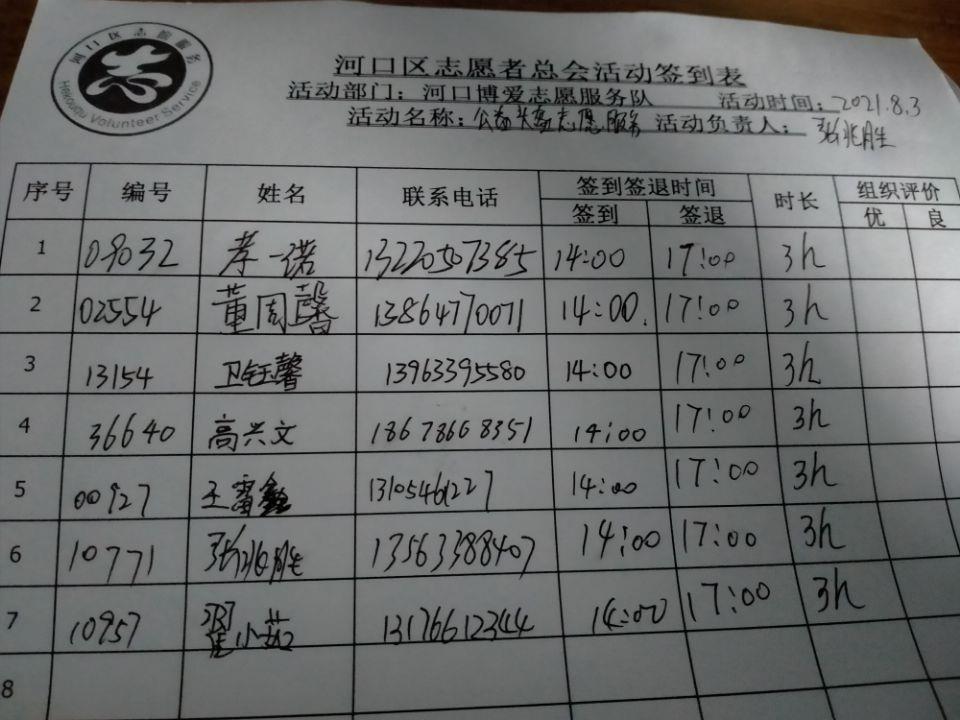 河口区志愿服务
Hekouqu Volunteer Service
河口区志愿者总会活动签到表
活动部门：河口博爱志愿服务队 活动时间：2021.8.3
活动名称：公益 志愿服务 活动负责人：张兆胜
序号 编号 姓名 联系电话 签到签退时间 时长 组织评价
签到 签退 优 良
1 09032 李一诺 13220507385 14:00 17:00 3h
2 02554 董周馨 13864770071 14:00. 17:00 3h
3 13154 卫钰馨 13963395580 14:00 17:00 3h
4 36640 高兴文 18678668351 14:00 17:00 3h
5 00927 王 鑫 13105461227 14:00 17:00 3h
6 10771 张兆胜 13563388407 14:00 17:00 3h
7 10957 翟小茹 13176612344 14:00 17:00 3h
8